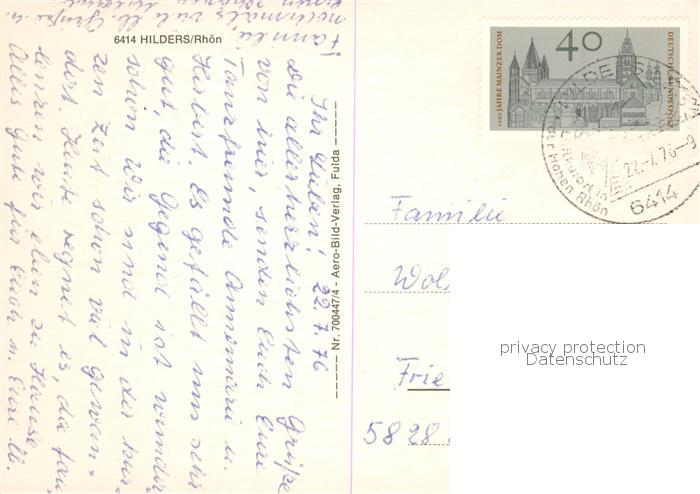 6414 HILDERS/Rhön
Ihr Lieben! 22.7.76
Die allerherzlichsten Grüße
von hier, senden Euch Eure
Tanzfreunde Annemarie u.
Herbert. Es gefällt uns sehr
gut, die Gegend ist wunder
schön. Wir sind in der kur-
zen Zeit schon viel gewan-
dert. Heute regnet es, da fau-
lenzen wir eben zu Hause.
Alles Gute für Euch u. Eure lb.
Familie
nochmals viele lb. Grüße u.
Nr. 700447/4 - Aero-Bild-Verlag, Fulda
40
1000 JAHRE MAINZER DOM
DEUTSCHE BUNDESPOST
22.-7.76-9
Luftkurort in
der Hohen Rhön
6414
Familie
Wol
Frie
5828
privacy protection
Datenschutz